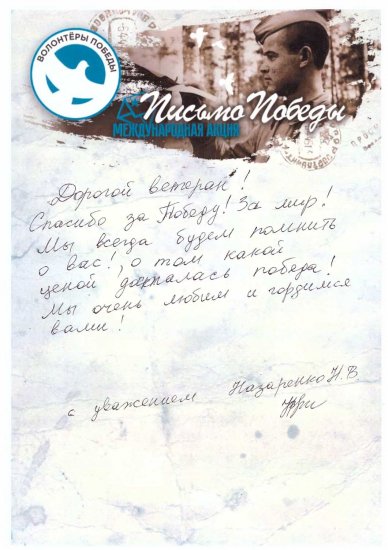 ВОЛОНТЁРЫ ПОБЕДЫ
Письмо Победы
МЕЖДУНАРОДНАЯ АКЦИЯ
Дорогой ветеран!
Спасибо за Победу! За мир!
Мы всегда будем помнить
о вас!, о том какой
ценой досталась победа!
Мы очень любим и гордимся
вами!
с уважением Назаренко Н.В.